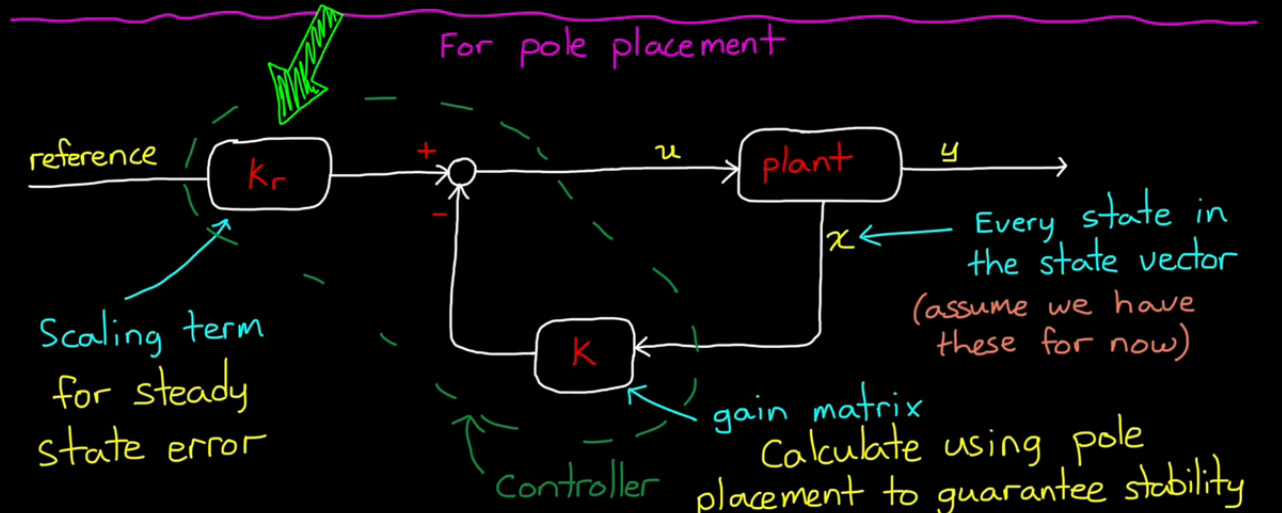 For pole placement
reference
Kr
+
-
u
plant
y
x
Every state in
the state vector
(assume we have
these for now)
K
Scaling term
for steady
state error
gain matrix
Calculate using pole
placement to guarantee stability
Controller